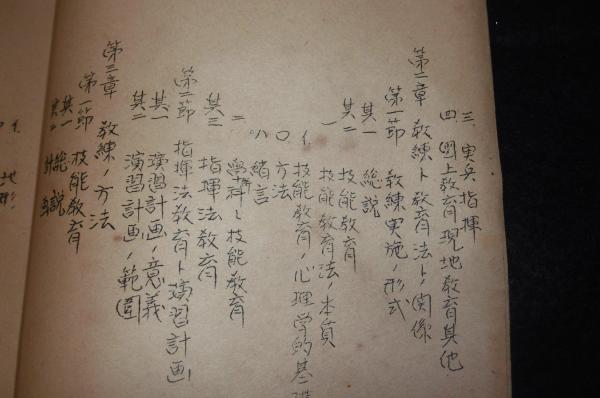 三、実兵指揮
四、図上教育現地教育其他
第二章 教練ト教育法トノ関係
第一節 教練実施ノ形式
其一 総説
其二 技能教育
一 技能教育法ノ本質
イ 技能教育ノ心理学的基礎
ロ 方法
ハ 緒言
二 学科ト技能教育
其三 指揮法教育
第二節 指揮法教育ト演習計画
其一 演習計画ノ意義
其二 演習計画ノ範囲
第三章 教練ノ方法
第一節 技能教育
其一 総説
其二
地形